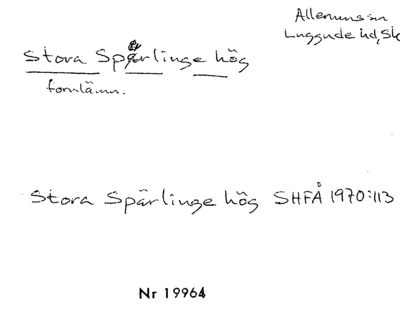 Allerums sn
Luggude hd, Sk
Stora Spärlinge hög
fornlämn.
Stora Spärlinge hög SHFÅ 1970:113
Nr 19964